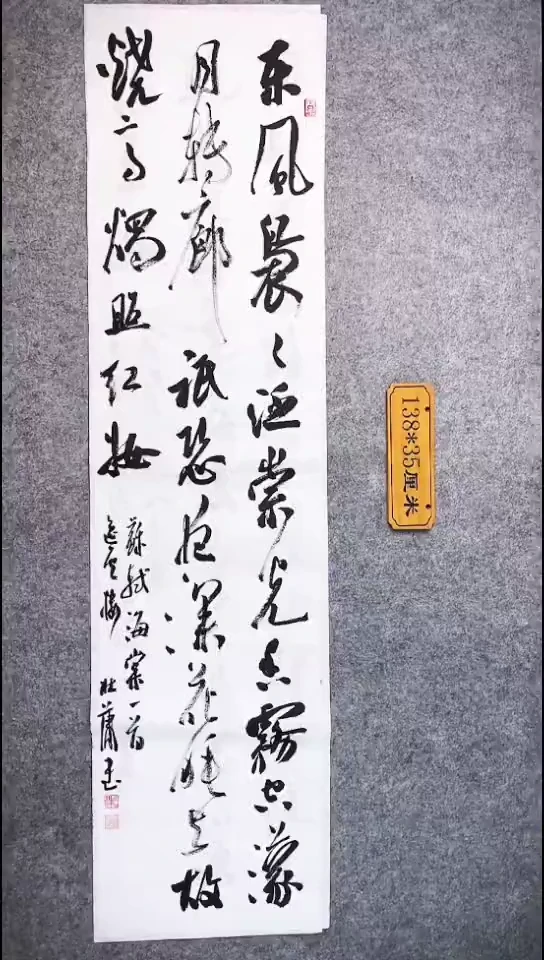 东風裊〻泛崇光香霧空濛
月轉廊祇恐夜深花睡去故
燒高燭照红妝
蘇軾海棠一首
138*35厘米